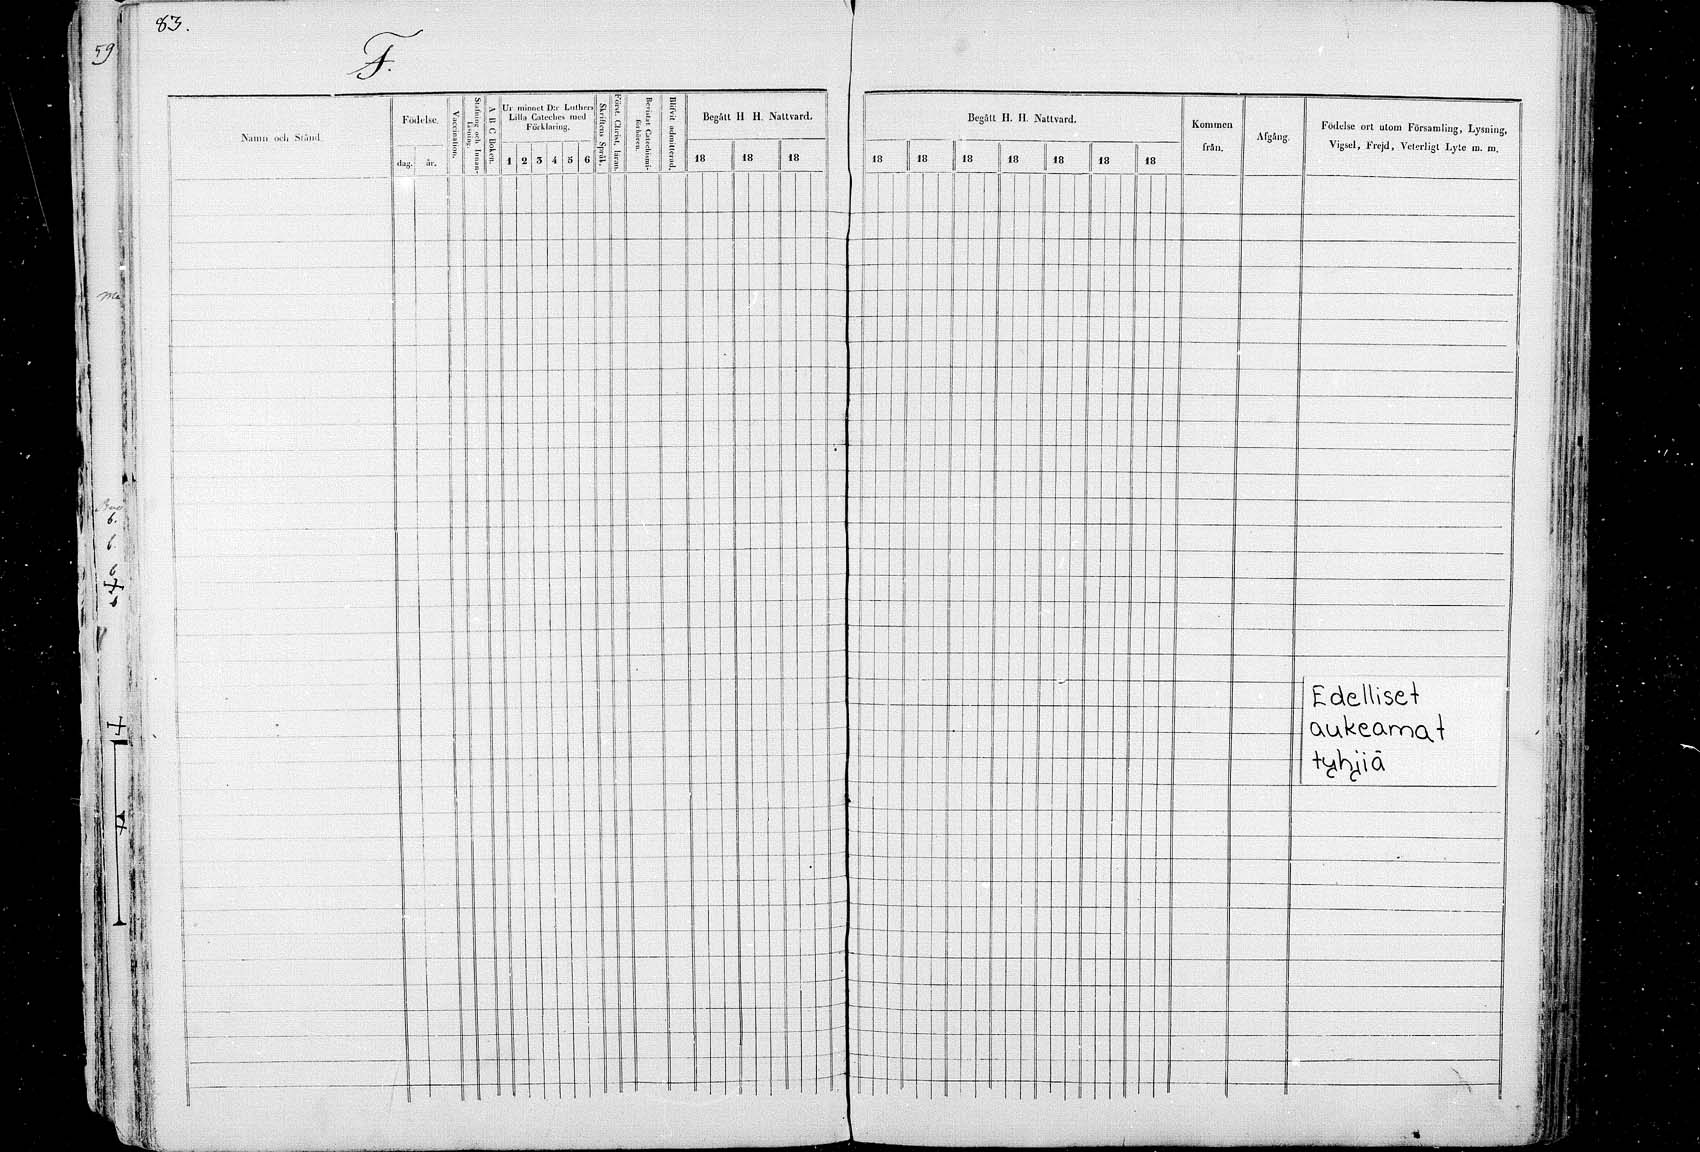 83.
59
F.
Namn och Stånd.
Födelse.
dag.
år.
Vaccination.
Stafning och Innan-
Läsning.
A B C Boken.
Ur minnet D:r Luthers
Lilla Cateches med
Förklaring.
1 2 3 4 5 6
Skriftens Språk.
Först. Christ. läran.
Bevistat Catechismi-
förhören.
Blifvit admitterad.
Begått H H. Nattvard.
18 18 18
Begått H. H. Nattvard.
18 18 18 18 18 18 18
Kommen
från.
Afgång.
Födelse ort utom Församling, Lysning,
Vigsel, Frejd, Veterligt Lyte m. m.
6.
6.
6
Edelliset
aukeamat
tyhjiä